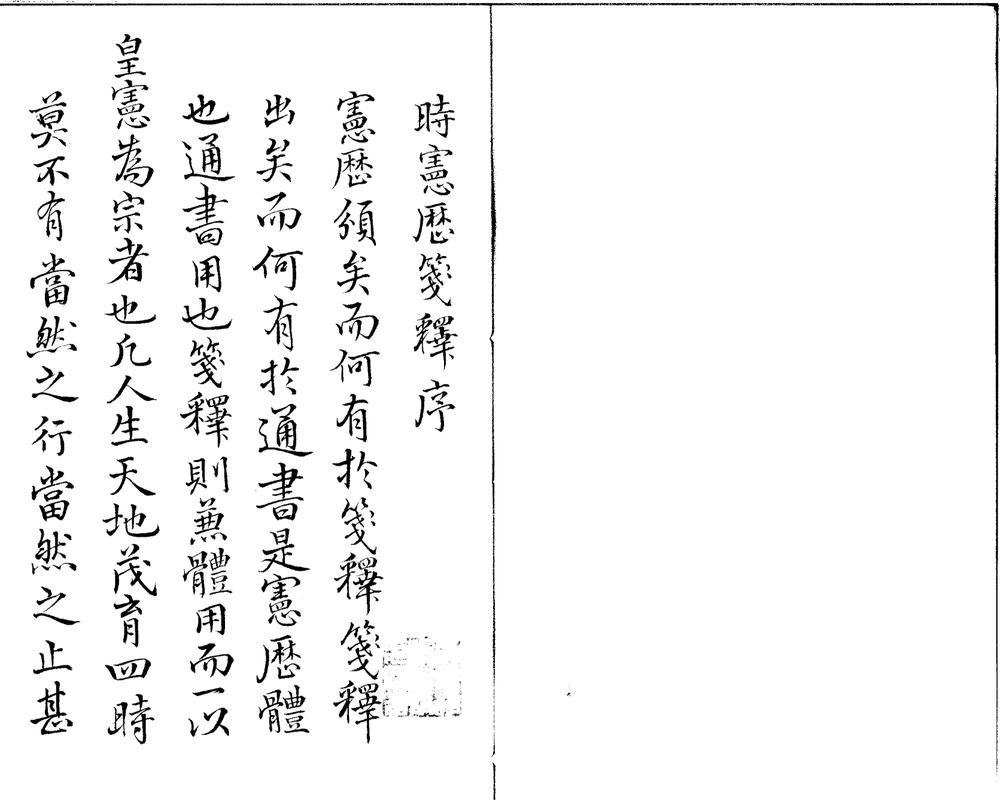 時憲歴箋釋序
憲歴頒矣而何有扵箋釋箋釋
出矣而何有扵通書是憲歴體
也通書用也箋釋則蕪體用而一以
皇憲為宗者也凢人生天地茂育四時
莫不有當然之行當然之止甚